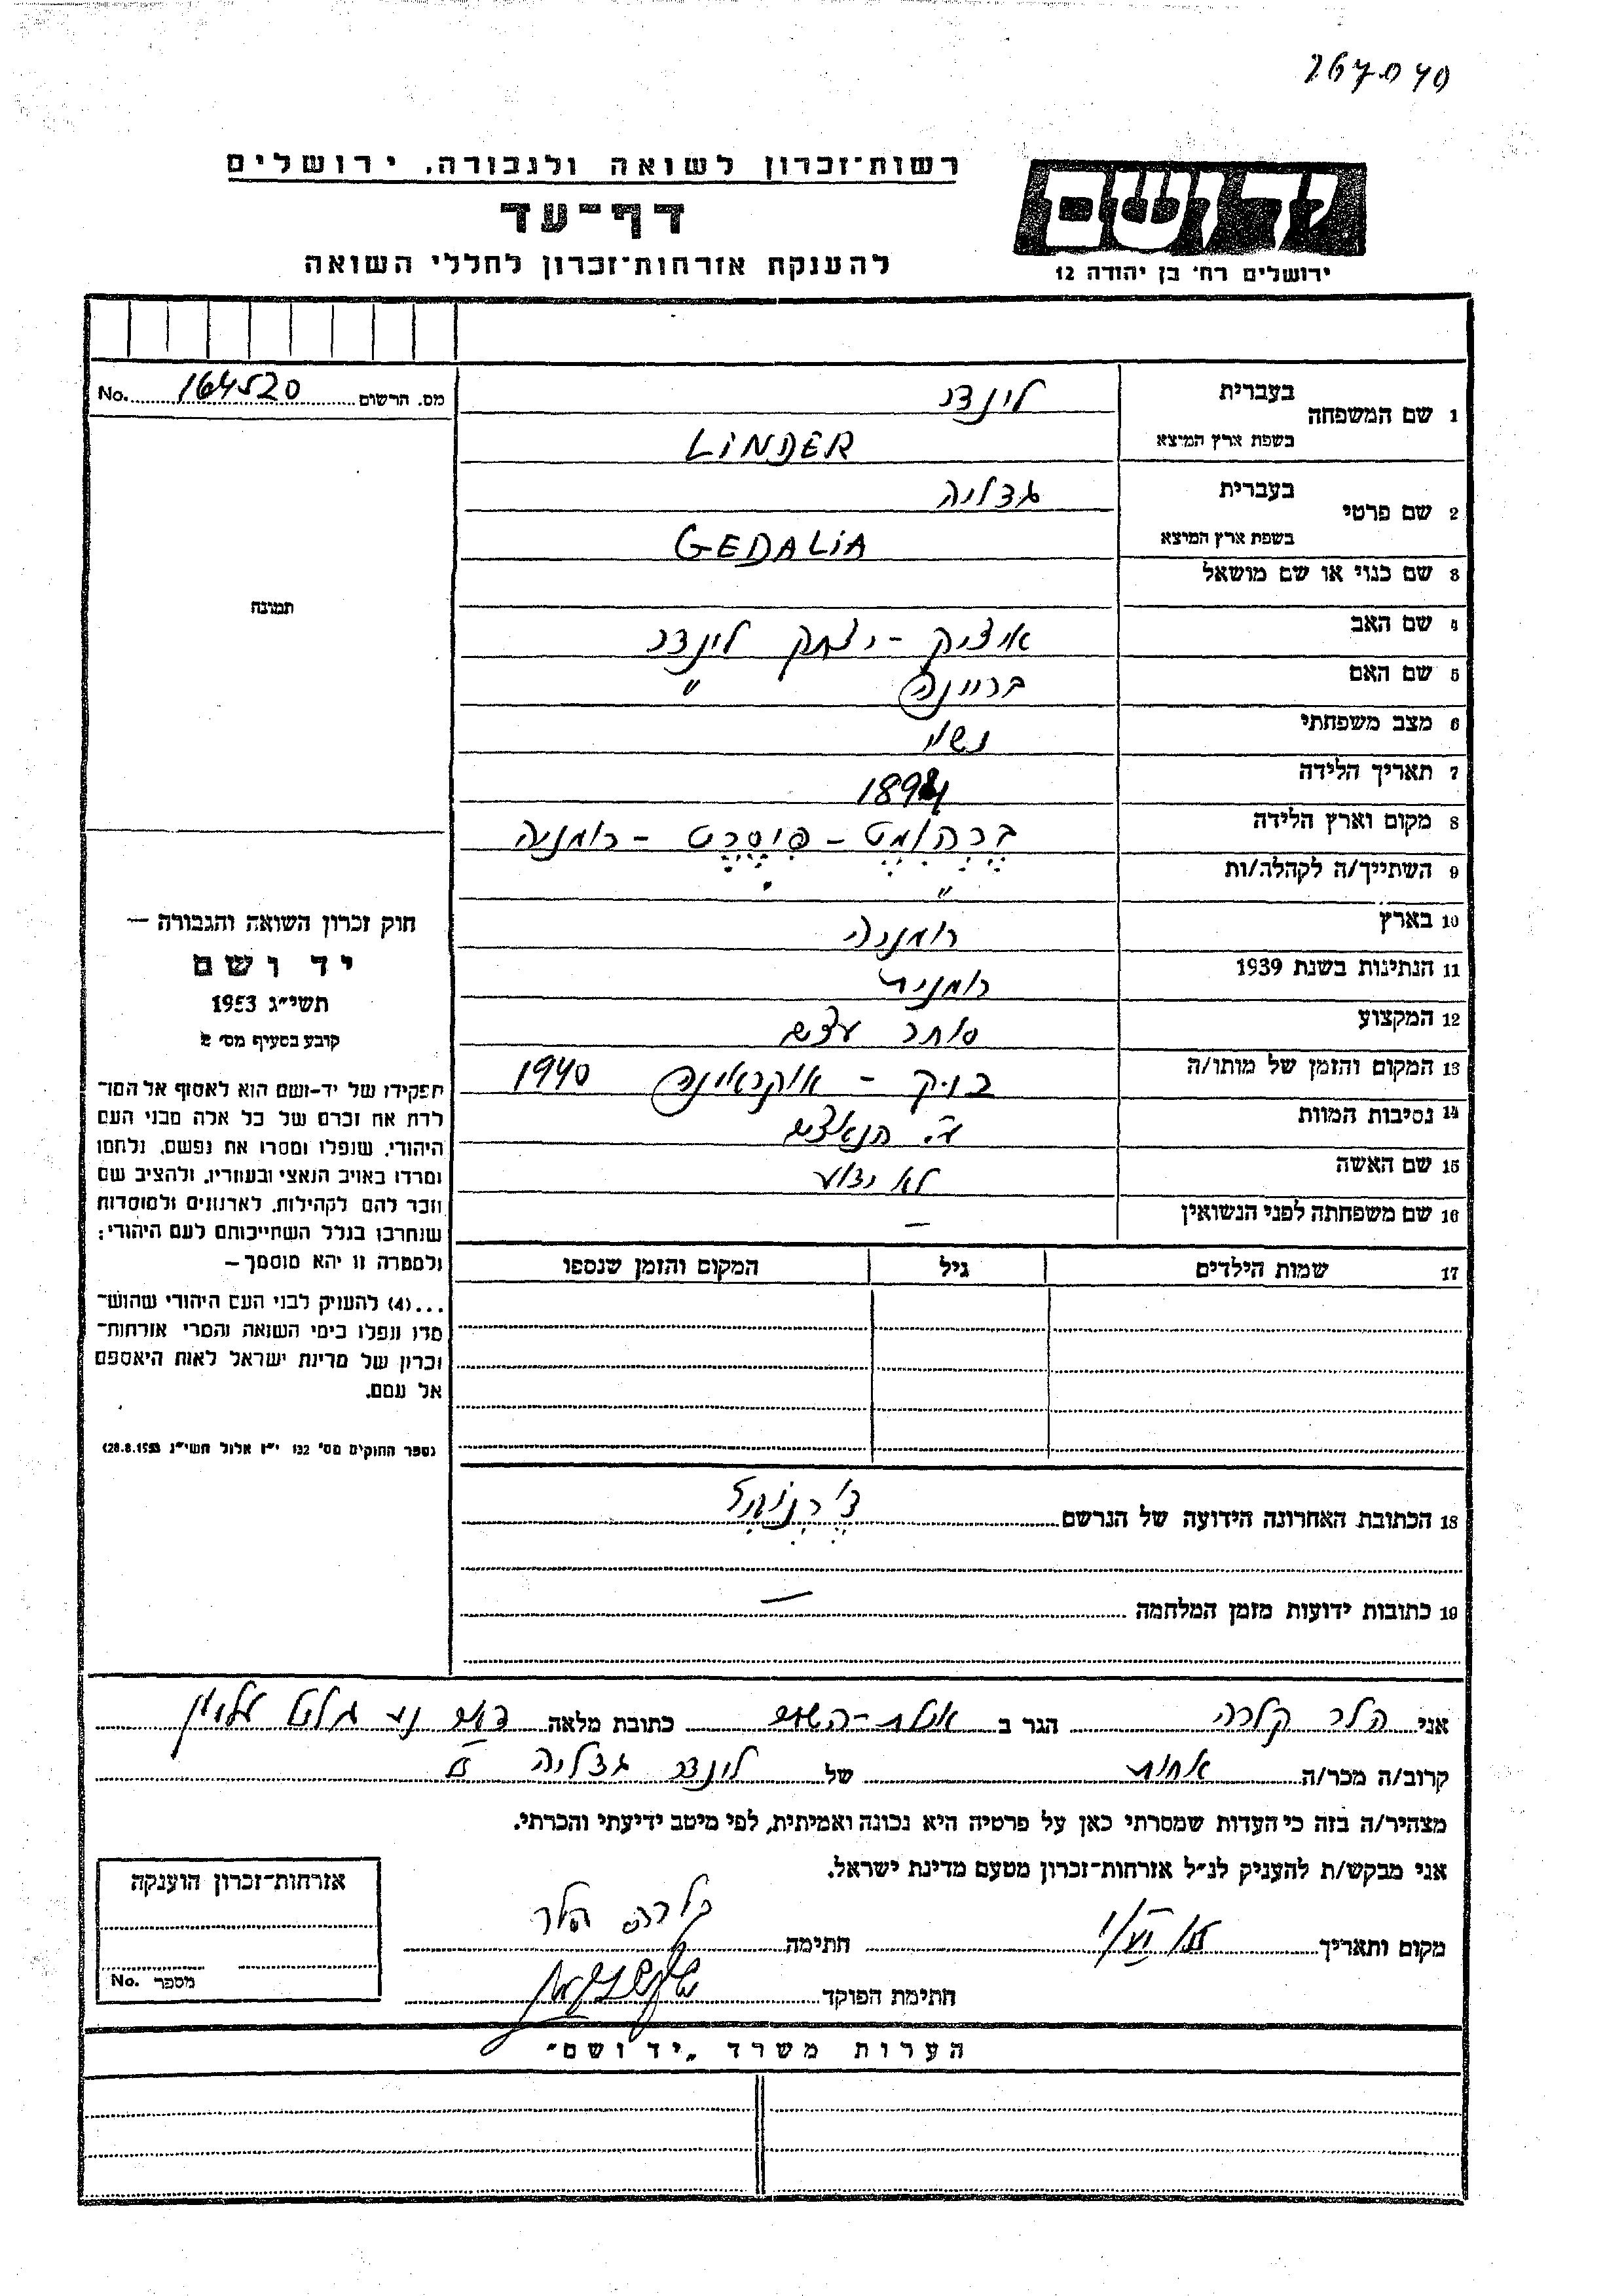 267040
רשות־זכרון לשואה ולגבורה, ירושלים
דף־עד
להענקת אזרחות־זכרון לחללי השואה
יד ושם
ירושלים רח׳ בן יהודה 12
מס. הרשום 164520 No.
1 שם המשפחה
בעברית לינדר
בשפת ארץ המוצא LINDER
2 שם פרטי
בעברית גדליה
בשפת ארץ המוצא GEDALIA
3 שם כנוי או שם מושאל
4 שם האב איציק - יצחק לינדר
5 שם האם ברוינה "
6 מצב משפחתי נשוי
7 תאריך הלידה
8 מקום וארץ הלידה - רומניה
9 השתייך/ה לקהלה/ות "
10 בארץ רומניה
11 הנתינות בשנת 1939 רומנית
12 המקצוע סוחר עצים
13 המקום והזמן של מותו/ה - אוקראינה 1940
14 נסיבות המוות ע"י הנאצים
15 שם האשה לא ידוע
16 שם משפחתה לפני הנשואין —
17 שמות הילדים גיל המקום והזמן שנספו
תמונה
חוק זכרון השואה והגבורה —
יד ושם
תשי״ג 1953
קובע בסעיף מס׳ 2
תפקידו של יד-ושם הוא לאסוף אל המו־
לדת את זכרם של כל אלה מבני העם
היהודי, שנפלו ומסרו את נפשם, נלחמו
ומרדו באויב הנאצי ובעוזריו, ולהציב שם
וזכר להם לקהילות, לארגונים ולמוסדות
שנחרבו בגלל השתייכותם לעם היהודי;
ולמטרה זו יהא מוסמך —
...(4) להעניק לבני העם היהודי שהוש־
מדו ונפלו בימי השואה והמרי אזרחות־
זכרון של מדינת ישראל לאות היאספם
אל עמם.
(ספר החוקים מס׳ 132 י״ז אלול תשי״ג 28.8.1953)
18 הכתובת האחרונה הידועה של הנרשם
19 כתובות ידועות מזמן המלחמה —
אני הלר קלרה הגר ב אילת-השחר כתובת מלאה ד.נ. גליל עליון
קרוב/ה מכר/ה אחות של לינדר גדליה
מצהיר/ה בזה כי העדות שמסרתי כאן על פרטיה היא נכונה ואמיתית, לפי מיטב ידיעתי והכרתי.
אני מבקש/ת להעניק לנ״ל אזרחות־זכרון מטעם מדינת ישראל.
מקום ותאריך חתימה קלרה הלר
חתימת הפוקד
אזרחות־זכרון הוענקה
מספר No.
הערות משרד „יד ושם״